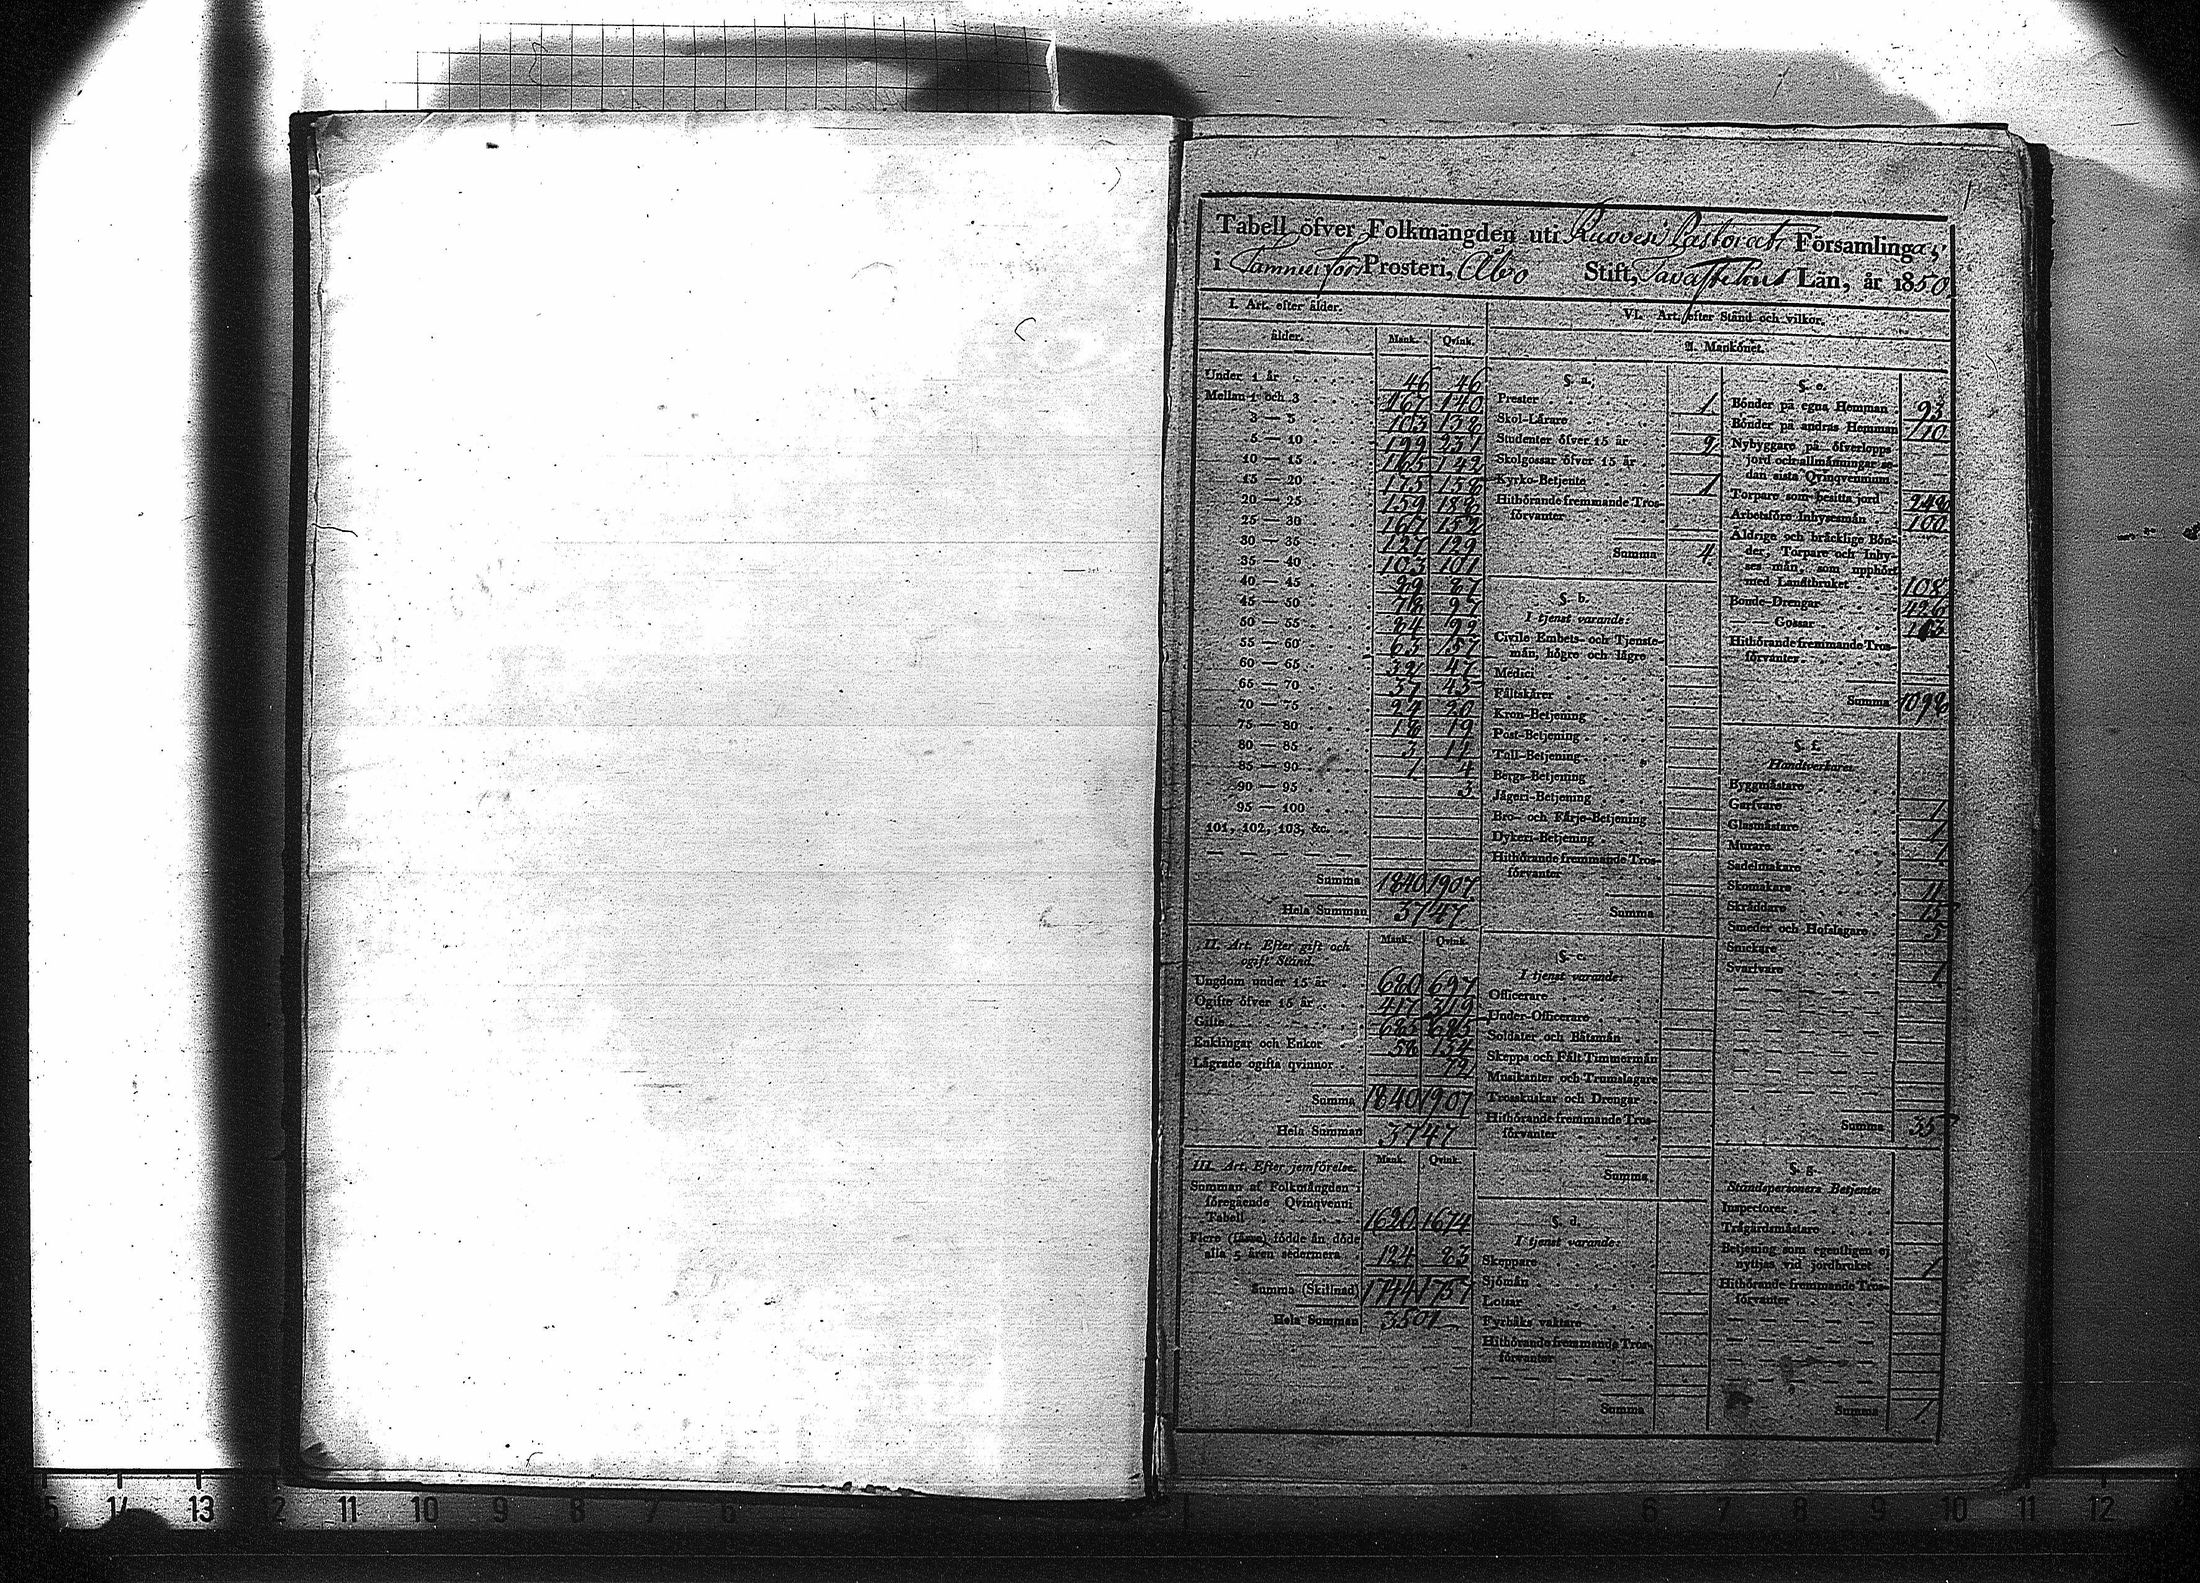 1
Tabell öfver Folkmängden uti Ruovesi Pastorats Församlingar
i Tammerfors Prosteri, Åbo Stift, Tavastehus Län, år 1850.
I. Art. efter ålder.
ålder. Mank. Qvink.
Under 1 år 46 46
Mellan 1 och 3 167 140
3 — 5 103 138
5 — 10 199 231
10 — 15 165 142
15 — 20 175 158
20 — 25 159 188
25 — 30 167 152
30 — 35 127 129
35 — 40 103 101
40 — 45 89 87
45 — 50 78 97
50 — 55 84 99
55 — 60 63
60 — 65 47
65 — 70 37 45
70 — 75 20
75 — 80 18 19
80 — 85 3 12
85 — 90 1 4
90 — 95 3
95 — 100
101, 102, 103, &c.
Summa 1840 1907
Hela Summan 3747
II. Art. Efter gift och
ogift Stånd. Mank. Qvink.
Ungdom under 15 år 680 697
Ogifte öfver 15 år 417 319
Gifte 685 685
Enklingar och Enkor 58 134
Lägrade ogifta qvinnor 72
Summa 1840 1907
Hela Summan 3747
III. Art. Efter jemförelse. Mank. Qvink.
Summan af Folkmängden i
föregående Qvinqvenni
Tabell 1620 1674
Flere (färre) födde än döde
alla 5 åren sedermera 124 83
Summa (Skillnad) 1744 1757
Hela Summan 3501
VI. Art. efter Stånd och vilkor.
A. Mankönet.
§. a.
Prester 1
Skol-Lärare
Studenter öfver 15 år 2
Skolgossar öfver 15 år
Kyrko-Betjente 1
Hithörande fremmande Tros-
förvanter
Summa 4
§. b.
I tjenst varande:
Civile Embets- och Tjenste-
män, högre och lägre
Medici
Fältskärer
Kron-Betjening
Post-Betjening
Tull-Betjening
Bergs-Betjening
Jägeri-Betjening
Bro- och Färje-Betjening
Dykeri-Betjening
Hithörande fremmande Tros-
förvanter
Summa
§. c.
I tjenst varande:
Officerare
Under-Officerare
Soldater och Båtsmän
Skepps och Fält Timmermän
Musikanter och Trumslagare
Trosskuskar och Drengar
Hithörande fremmande Tros-
förvanter
Summa
§. d.
I tjenst varande:
Skeppare
Sjömän
Lotsar
Fyrbåks vaktare
Hithörande fremmande Tros-
förvanter
Summa
§. e.
Bönder på egna Hemman 93
Bönder på andras Hemman 110
Nybyggare på öfverlopps
jord och allmänningar se-
dan sista Qvinqvennium
Torpare som besitta jord 248
Arbetsföre Inhysesmän 100
Åldrige och bräcklige Bön-
der, Torpare och Inhy-
ses män, som upphört
med Landtbruket 108
Bonde-Drengar 426
—— Gossar
Hithörande fremmande Tros-
förvanter
Summa 1098
§. f.
Handtverkare:
Byggmästare
Garfvare 1
Glasmästare 1
Murare 1
Sadelmakare
Skomakare 11
Skräddare 15
Smeder och Hofslagare 5
Snickare
Svarfvare 1
Summa 35
§. g.
Ståndspersoners Betjente:
Inspectorer
Trägårdsmästare
Betjening som egentligen ej
nyttjas vid jordbruket 1
Hithörande fremmande Tros-
förvanter
Summa 1
15 14 13 12 11 10 9 8 7 6
6 7 8 9 10 11 12